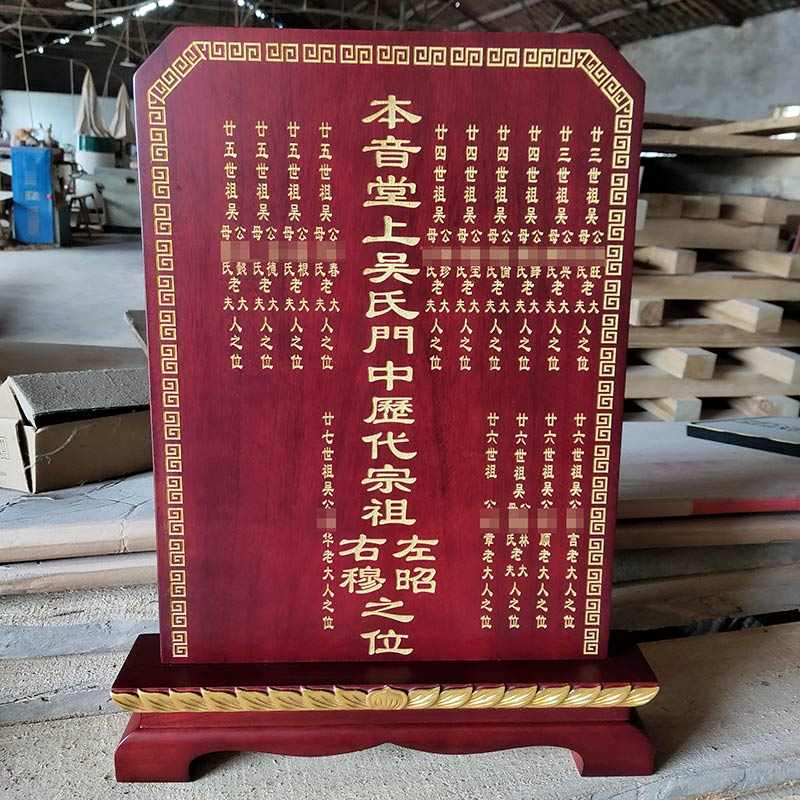 廿三世祖吴公母旺氏老大夫人之位
廿三世祖吴公母兴氏老大夫人之位
廿四世祖吴公母氏老大夫人之位
廿四世祖吴公母倫氏老大夫人之位
廿四世祖吴公母氏老大夫人之位
廿四世祖吴公母珍氏老大夫人之位
廿六世祖吴公言老大人之位
廿六世祖吴公老大人之位
廿六世祖吴公母林氏老大夫人之位
廿六世祖公章老大人之位
本音堂上吴氏門中歷代宗祖左昭右穆之位
廿五世祖吴公母春氏老大夫人之位
廿五世祖吴公母根氏老大夫人之位
廿五世祖吴公母德氏老大夫人之位
廿五世祖吴公母氏老大夫人之位
廿七世祖吴公华老大人之位